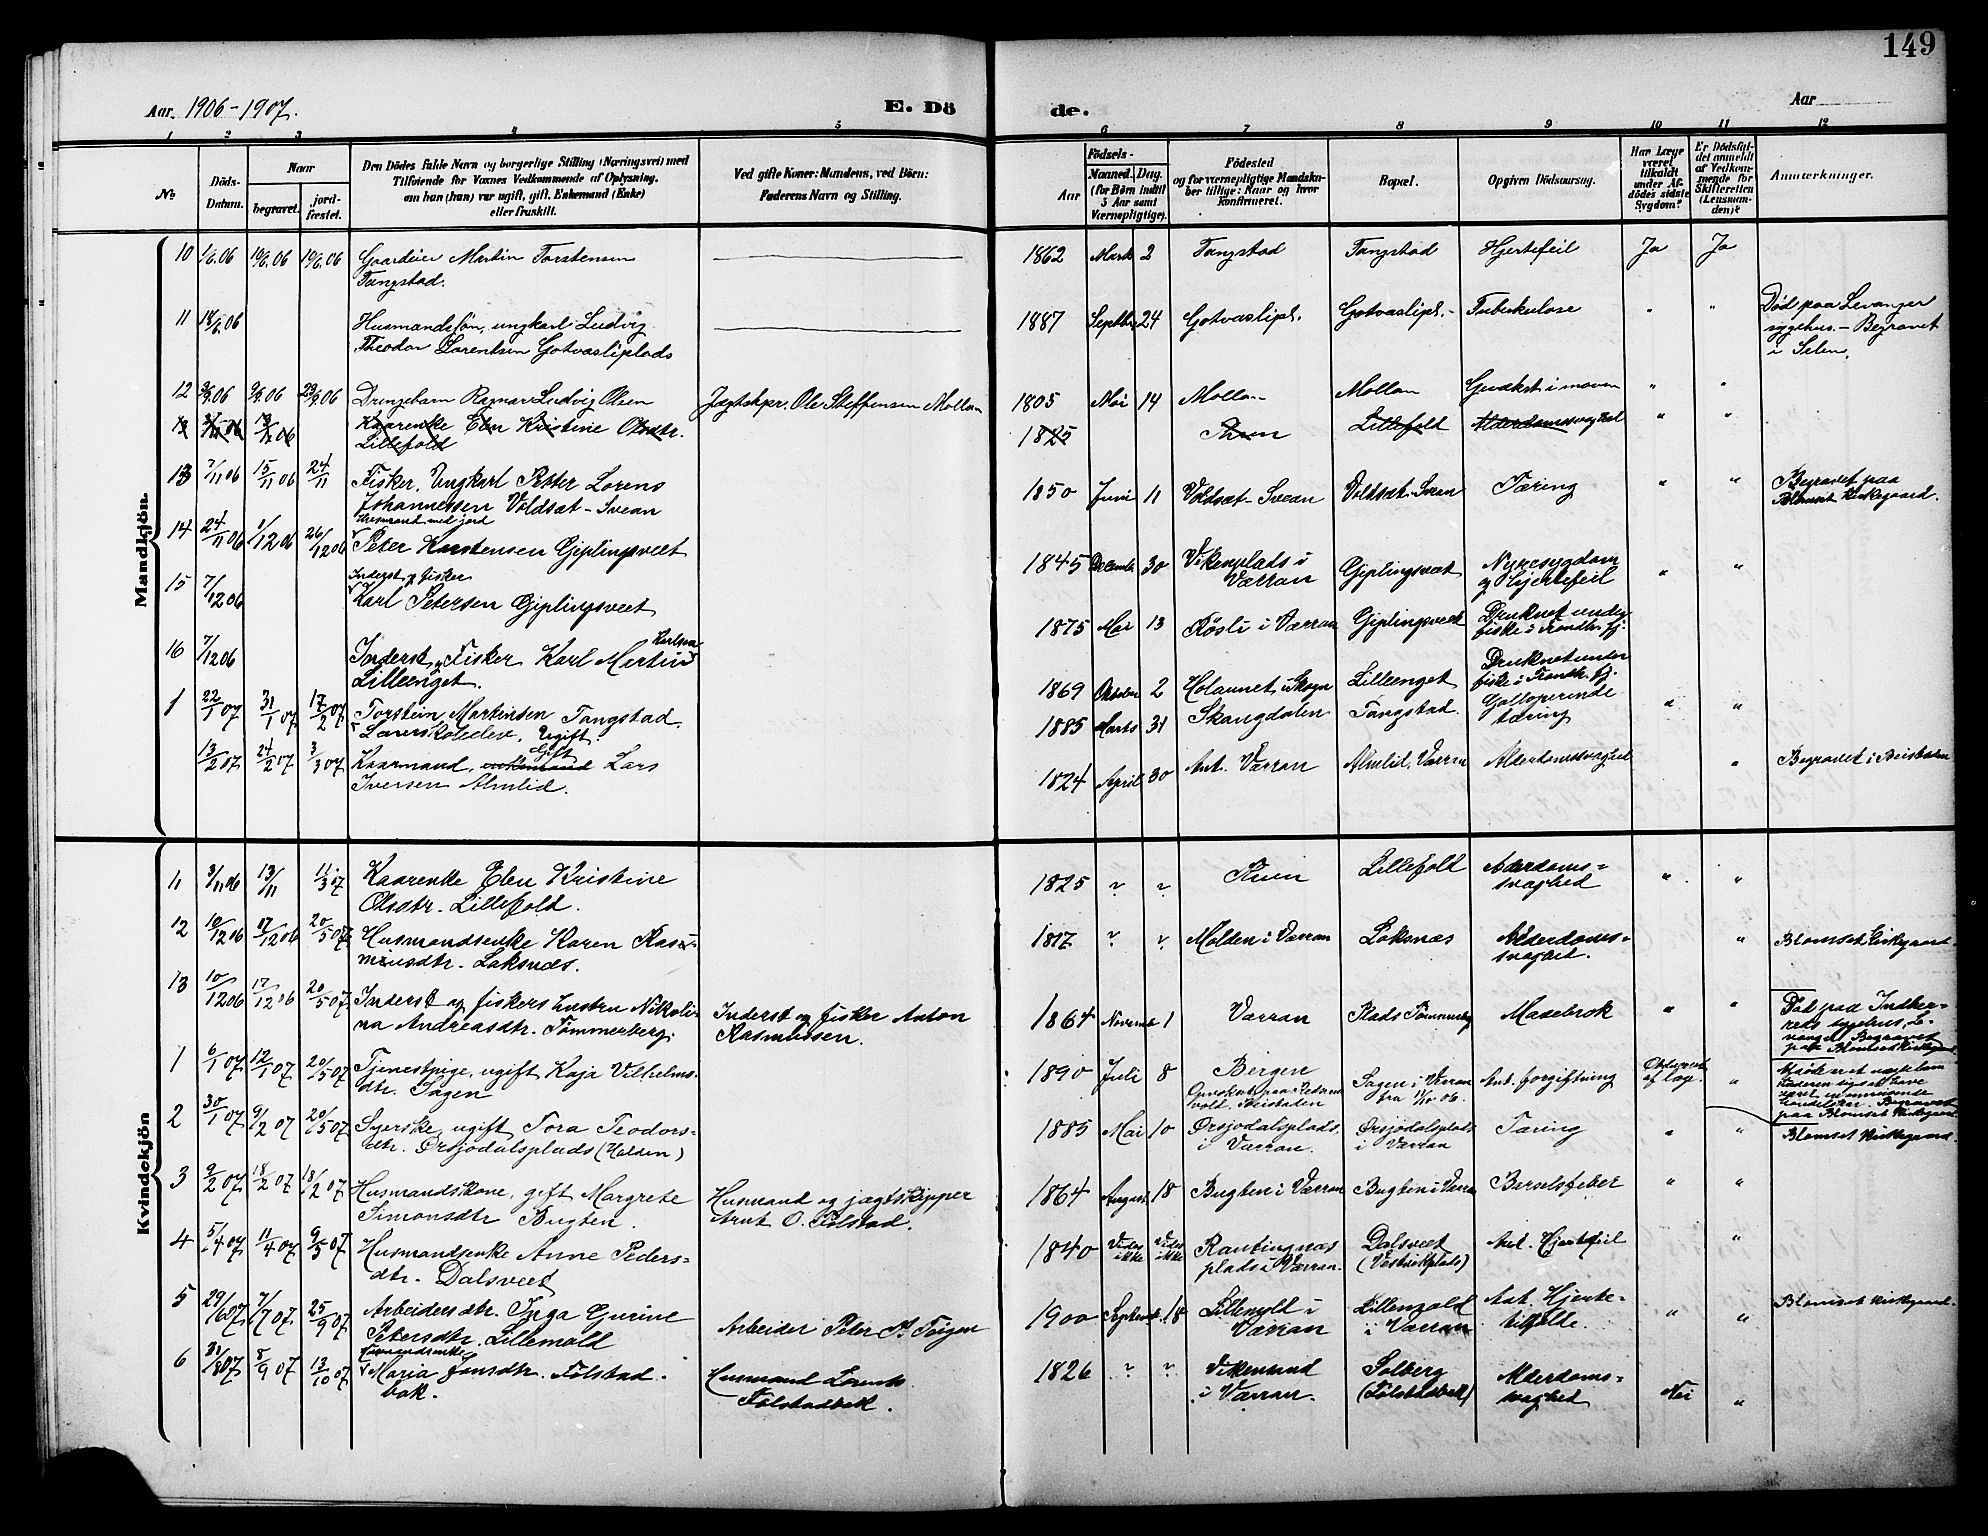 149
Aar. 1906-1907.
E. Dö
de.
Aar
1 2 3 4 5 6 7 8 9 10 11 12
No
Döds-Datum.
Naar
begravet.
jord-fæstet.
Den Dödes fulde Navn og borgerlige Stilling (Næringsvei) med
Tilföiende for Voxnes Vedkommende af Oplysning,
om han (hun) var ugift, gift, Enkemand (Enke)
eller fraskilt.
Ved gifte Koner: Mandens, ved Börn:
Faderens Navn og Stilling.
Aar
Födsels-
Maaned. Dag.
(for Börn indtil
5 Aar samt
Værnepligtige).
Födested
og for værnepligtige Mandska-
ber tillige: Naar og hvor
konfirmeret.
Bopæl.
Opgiven Dödsaarsag.
Har Læge
været
tilkaldt
under Af-
dödes sidste
Sygdom?
Er Dödsfal-
det anmeldt
af Vedkom-
mende for
Skifteretten
(Lensman-
den)?
Anmærkninger.
Mandkjön.
10 1/6.06 19/6.06 19/6.06 Gaardeier Martin Torstensen
Tangstad.
1862 Marts 2 Tangstad Tangstad Hjertefeil Ja Ja
11 18/6.06 Husmandssön, ungkarl Ludvig
Theodor Lorentsen Gotvasliplads
1887 Septbr 24 Gotvaslipl. Gotvaslipl. Tuberkulose " " Död paa Levanger
sygehus. - Begravet
i Selen.
12 3/9.06 9/9.06 23/9.06 Drengebarn Ragnar Ludvig Olsen Jægtskpr. Ole Steffensen Mollan
1805 Mai 14 Mollan Mollan Guækst i maven " "
13 3/11 06 13/11 06 Kaarenke Elen Kristine Olsdtr.
Lillefold
1825 Lillefold Alderdomssvaghed " "
13 7/11 06 15/11 06 24/11 Fisker, Ungkarl Petter Lorens
Johannessen Voldsæt-Svean
1850 Juni 11 Voldsæt-Svean Voldsæt-Svean Tæring " " Begravet paa
Blomset Kirkegaard.
14 24/11 06 1/12 06 26/12 06 Husmand med jord
Peter Karstensen Giplingsveet
1845 Decembr 30 Vikenplads i
Værran Giplingsvæt Nyresygdom
og Hjertefeil " "
15 7/12 06 Inderst og fisker
Karl Petersen Giplingsveet
1875 Mai 13 Røsli i Værran Giplingsveet Druknet under
fiske i Trondh. fj.
16 7/12 06 Inderst og Fisker Karl Martin Karlsen
Lilleenget.
1869 Oktober 2 Holaunet i Skogn Lilleenget Druknet under
fiske i Trondh. fj.
1 22/1 07 31/1 07 17/2 07 Torstein Martinsen Tangstad
Lærerskoleelev. Ugift.
1885 Marts 31 Skangdalen Tangstad. Galloperende
tæring " "
13/2 07 24/2 07 3/3 07 Kaarmand, enkemand Gift Lars
Iversen Almlid.
1824 April 30 Ant. Værran Almlid, Værran Alderdomssvaghed " Begravet i Beistaden
Kvindekjön
11 3/11 06 13/11 11/3 07 Kaarenke Elen Kristine
Olsdtr. Lillefold.
1825 ? ? Lillefold Alderdoms=
svaghed " "
12 10/12 06 17/12 06 20/5 07 Husmandsenke Karen Ras=
musdtr. Laksnæs.
1817 ? ? Molden i Værran Laksnæs Alderdoms=
svaghed. " Blomset Kirkegaard.
13 10/12 06 17/12 06 20/5 07 Inderst og fiskers hustru Nikoli-
na Andreasdtr. Tömmerberg.
Inderst og fisker Anton
Rasmussen.
1864 Novembr 1 Værran Plads Tömmerberg Mavebrok " " Död paa Indher-
reds sygehus, Le-
vanger. Begravet
paa Blomset Kirkegaard
1 6/1 07 12/1 07 20/5 07 Tjenestpige, ugift Kaja Vilhelms-
dtr. Sagen
1890 Juli 8 Bergen
Sagen i Værran
fra 11/10 06. Ant. forgiftning Obduceret
af læge "
Begravet
paa Blomset Kirkegaard.
2 30/1 07 9/2 07 20/5 07 Syerske, ugift Tora Teodors-
dtr. Ørsjödalsplads (Halden)
1885 Mai 10 Ørsjödalsplads
i Værran. Ørsjödalsplads
i Værran Tæring " " Blomset Kirkegaard.
3 9/2 07 18/2 07 18/2 07 Husmandskone, gift Margrete
Simonsdtr Bugten.
Husmand og jægtskipper
Arnt O. Folstad.
1864 August 18 Bugten i Værran Bugten i Værran Barselfeber " "
4 5/4 07 11/4 07 9/5 07 Husmandsenke Anne Peders-
dtr. Dalsveet
1840 Vides
ikke Vides
ikke Rautingnæs
plads i Værran. Dalsveet
(Vestvikplads) Ant. Hjertefeil "
5 29/6 07 7/7 07 25/9 07 Arbeidersdtr. Inga Gurine
Petersdtr. Lillemold
Arbeider Peter
1900 Septembr 18 i
Værran i Værran Ant. Hjerte=
tilfælde. " " Blomset Kirkegaard.
6 31/8 07 8/9 07 13/10 07 Husmandsenke
Maria Jonsdtr. Folstad
bak.
Husmand Lorents
Folstadbak.
1826 ? ? Vikensand
i Værran. Solberg
(Folstadbak) Alderdoms=
svaghed Nei "